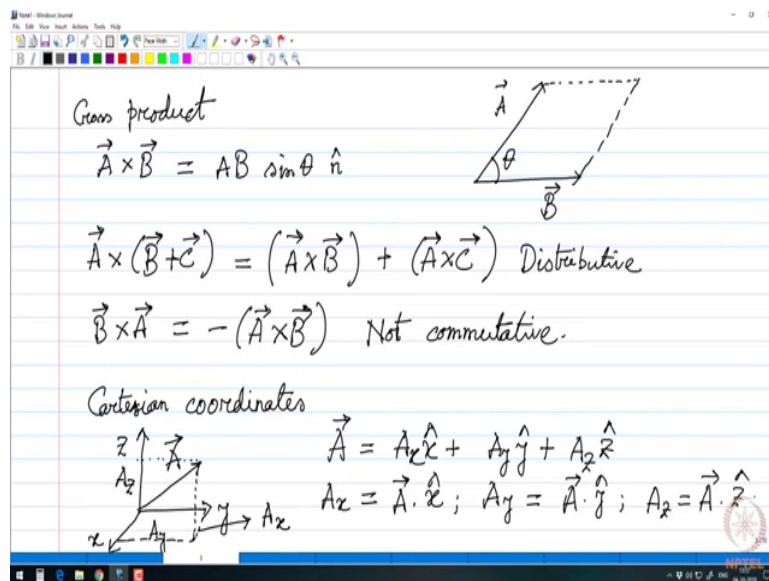 Note1 - Windows Journal
File Edit View Insert Actions Tools Help
Page Width
B I
Cross product
A⃗ × B⃗ = AB sinθ n̂
A⃗
θ
B⃗
A⃗ × (B⃗ + C⃗) = (A⃗ × B⃗) + (A⃗ × C⃗) Distributive
B⃗ × A⃗ = - (A⃗ × B⃗) Not commutative.
Cartesian coordinates
Z
A⃗
A_z
y
A_x
x
A_y
A⃗ = A_x x̂ + A_y ŷ + A_z ẑ
A_x = A⃗ . x̂ ; A_y = A⃗ . ŷ ; A_z = A⃗ . ẑ
NPTEL
ENG